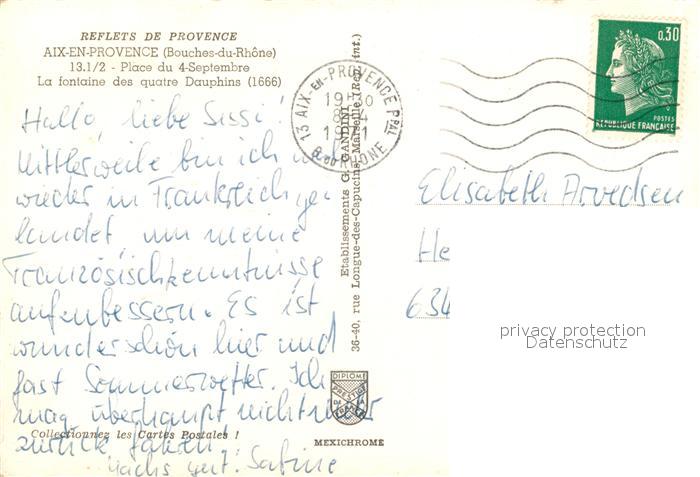 REFLETS DE PROVENCE
AIX-EN-PROVENCE (Bouches-du-Rhône)
13.1/2 - Place du 4-Septembre
La fontaine des quatre Dauphins (1666)
Hallo, liebe Sissi!
Mittlerweile bin ich
wieder in Frankreich ge-
landet um meine
Französischkenntnisse
aufenbessern. Es ist
wunderschön hier und
fast Sommerwetter. Ich
mag überhaupt nicht
zurück fahren!
Sabine
Collectionnez les Cartes Postales !
Etablissements G. GANDINI
36-40, rue Longue-des-Capucins, Marseille (Rep. int.)
13 AIX-EN-PROVENCE PPAL
19H30
1971
B. DU RHONE
0,30
POSTES
REPUBLIQUE FRANÇAISE
Elisabeth Arvedsen
He
634
privacy protection
Datenschutz
DIPLOME
PRESTIGE
DE LA
FRANCE
MEXICHROME